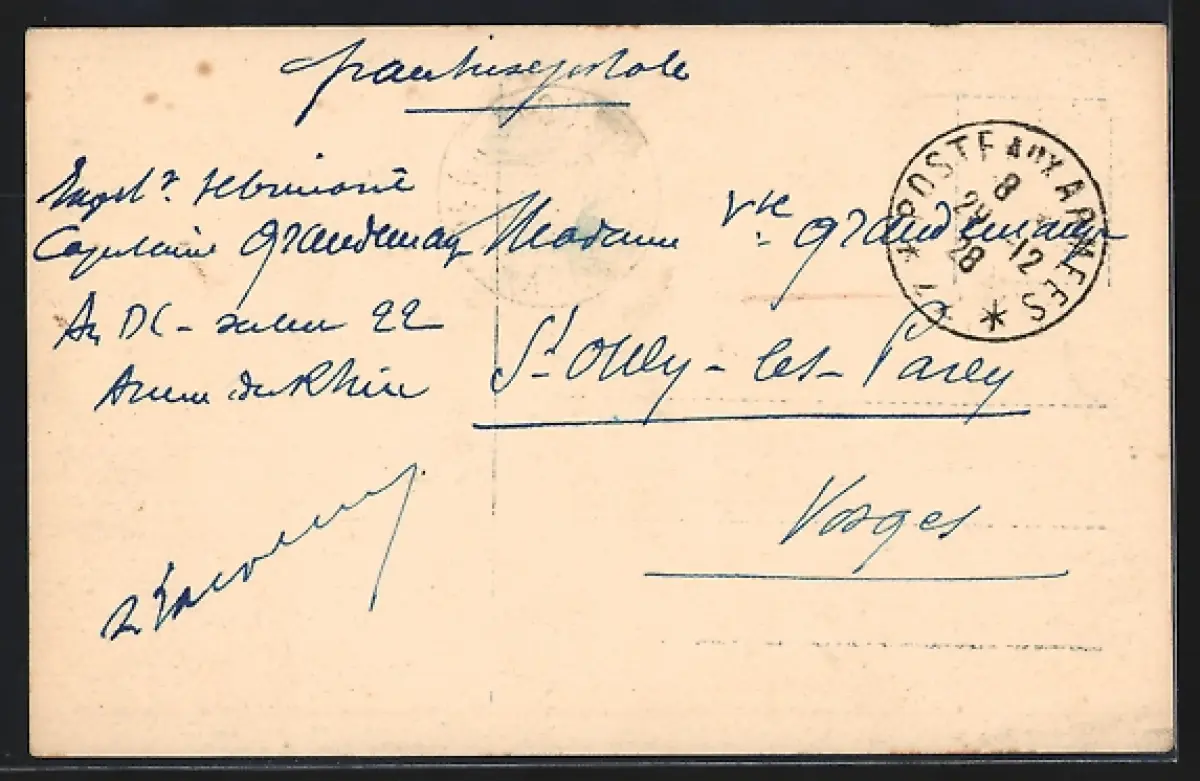 franchise postale
Exp.r
Capitaine Grandemay
Au DC - secteur 22
Armée du Rhin
Madame Vve. Grandemay
St Ouen - les - Parey
Vosges
POSTE AUX ARMEES
8
12
28